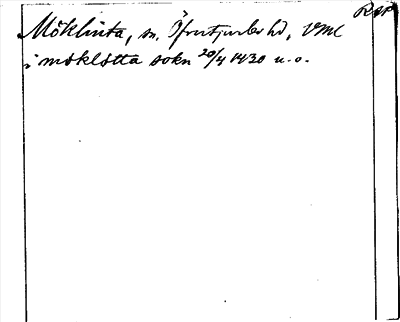 RAP
Möklinta, sn. Öfvertjurbo hd, Vml
i møkløtta sokn 20/4 1430 u. o.